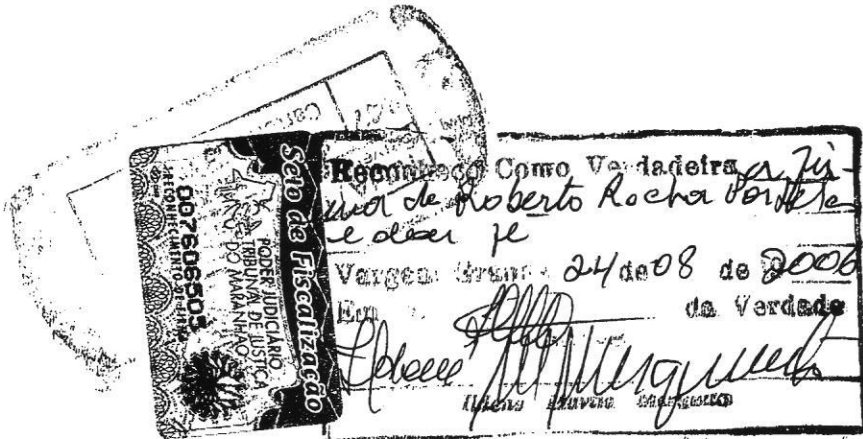 Selo de Fiscalização
PODER JUDICIÁRIO
TRIBUNAL DE JUSTIÇA
DO MARANHÃO
007606503
RECONHECIMENTO DE FIRMA
Reconheço Como Verdadeira a fir-
ma de Roberto Rocha
e dou fé
Vargem Grande 24 de 08 de 2006
Em da Verdade